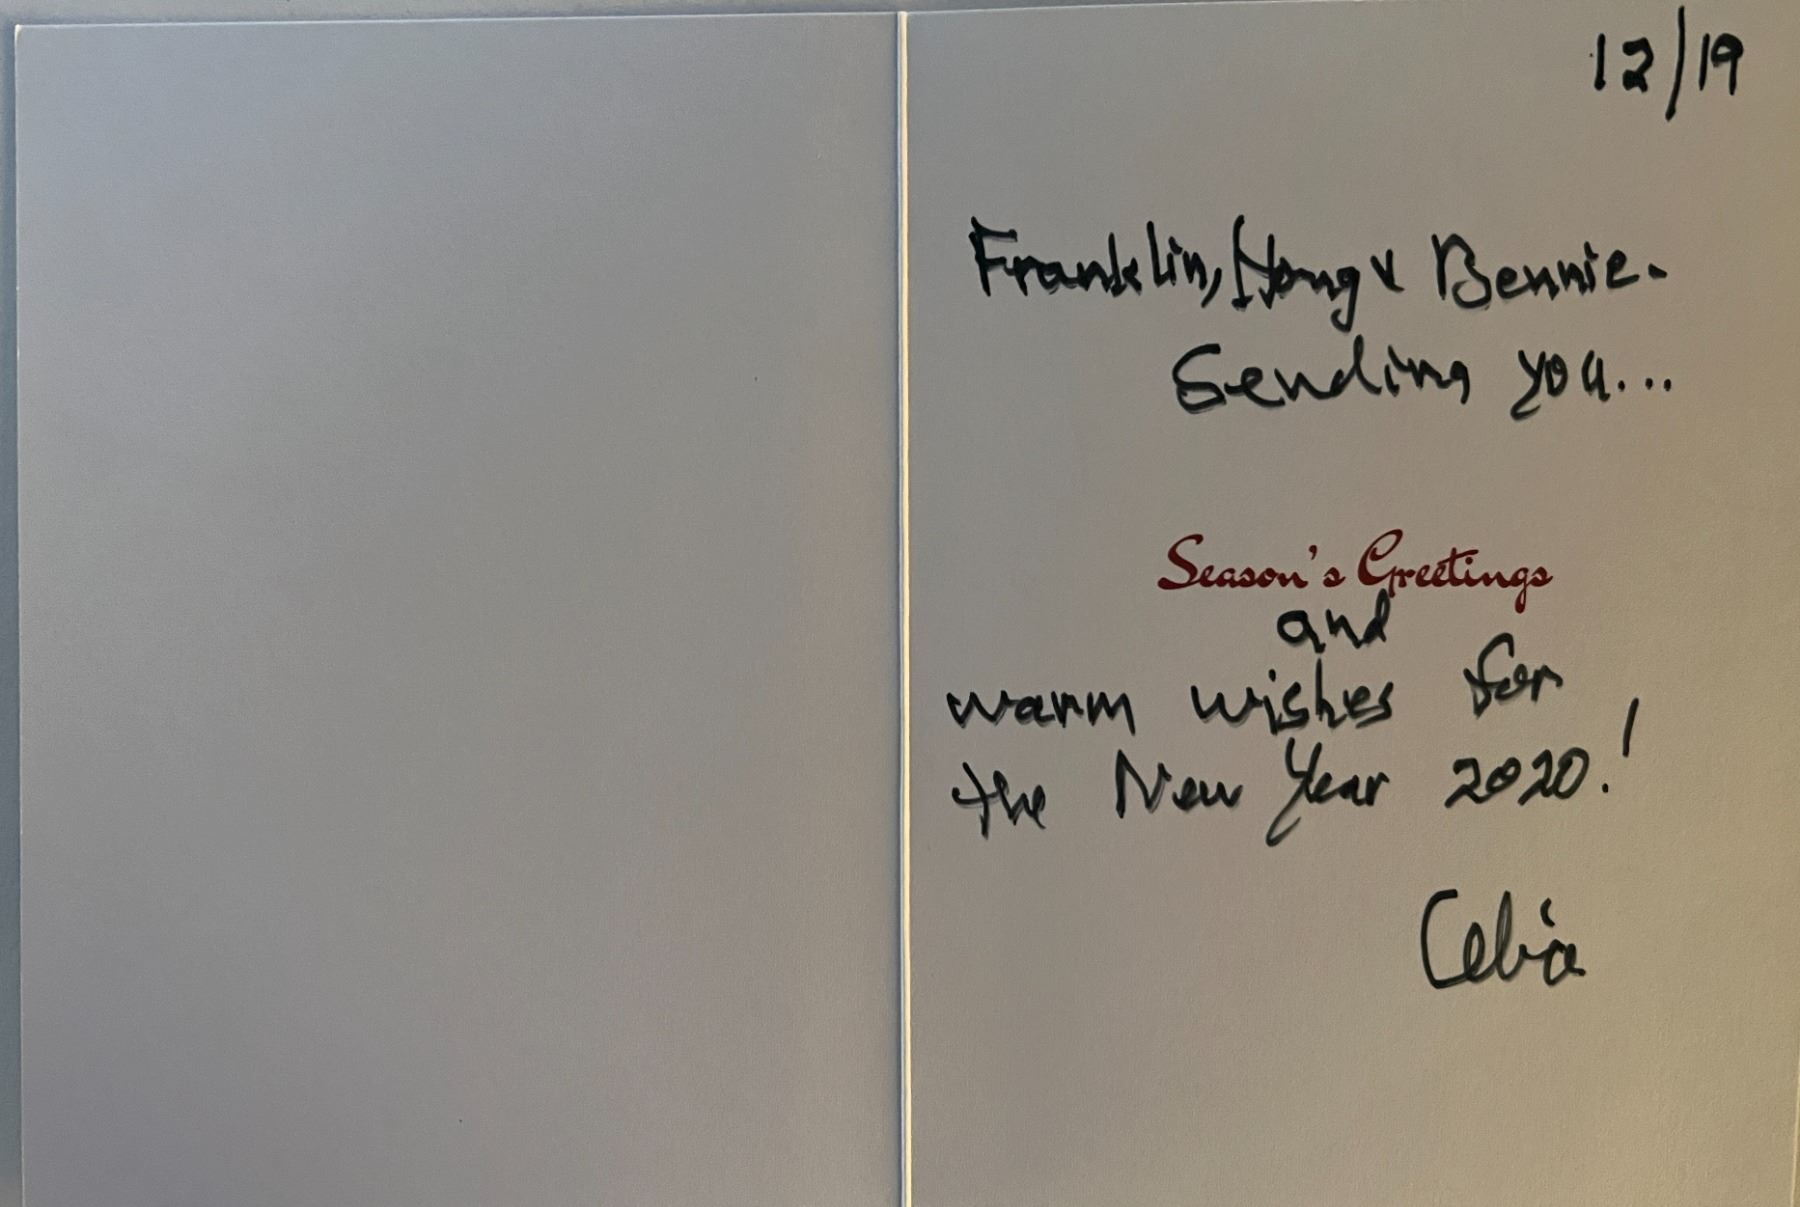 12/19
Franklin, Hong & Bennie.
Sending you...
Season's Greetings
and
warm wishes for
the New Year 2020!
Celia